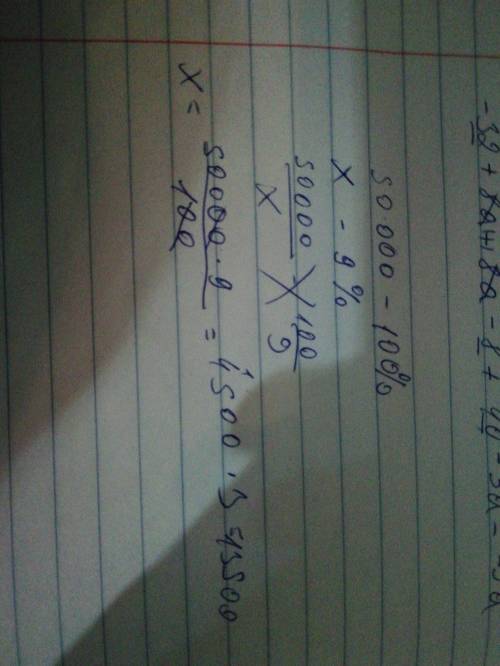 -32 + 8a + 8a - 8 + 40 - 3a = 
50.000 - 100%
x - 9%
50000/x 100/9
x = 50000 . 9/100 = 4500 . 3 = 13500